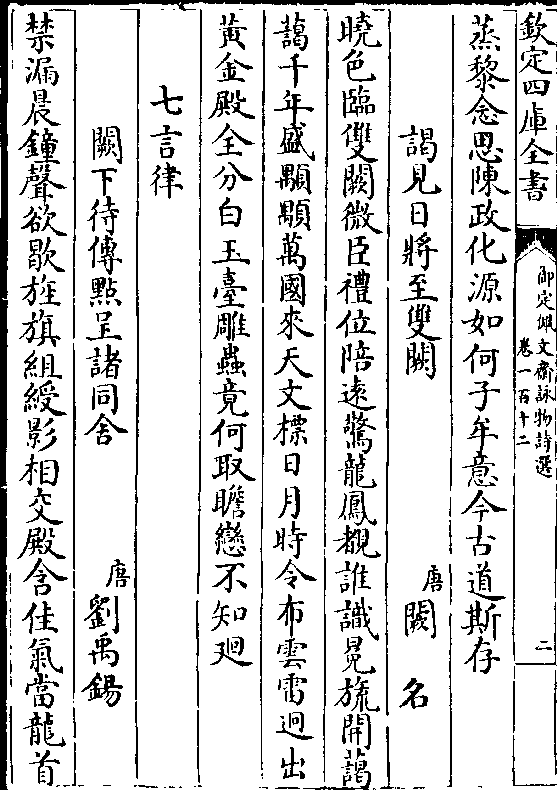 欽定四庫全書
御定佩文齋詠物詩選
卷一百十二
二
蒸黎念思陳政化源如何子牟意今古道斯存
謁見日將至雙闕
唐 闕名
曉色臨雙闕微臣禮位陪遠驚龍鳳覩誰識冕旒開藹
藹千年盛顒顒萬國來天文標日月時令布雲雷迥出
黃金殿全分白玉臺雕蟲竟何取瞻戀不知迴
七言律
闕下待傳點呈諸同舍
唐 劉禹錫
禁漏晨鐘聲欲歇旌旗組綬影相交殿含佳氣當龍首